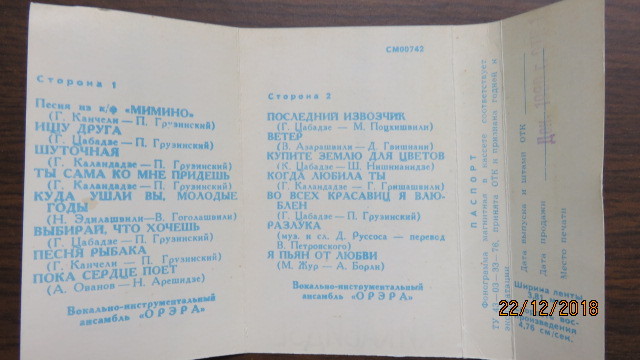 СМ00742
Сторона 1
Песня из к/ф «МИМИНО»
(Г. Канчели — П. Грузинский)
ИЩУ ДРУГА
(Г. Цабадзе — П. Грузинский)
ШУТОЧНАЯ
(Г. Каландадзе — П. Грузинский)
ТЫ САМА КО МНЕ ПРИДЕШЬ
(Г. Каландадзе — П. Грузинский)
КУДА УШЛИ ВЫ, МОЛОДЫЕ
ГОДЫ
(Н. Эдилашвили—В. Гоголашвили)
ВЫБИРАЙ, ЧТО ХОЧЕШЬ
(Г. Цабадзе — П. Грузинский)
ПЕСНЯ РЫБАКА
(Г. Канчели — П. Грузинский)
ПОКА СЕРДЦЕ ПОЕТ
(А. Ованов — Н. Арешидзе)
Вокально-инструментальный
ансамбль «ОРЭРА»
Сторона 2
ПОСЛЕДНИЙ ИЗВОЗЧИК
(Г. Цабадзе — М. Поцхишвили)
ВЕТЕР
(В. Азарашвили — Д. Гвишиани)
КУПИТЕ ЗЕМЛЮ ДЛЯ ЦВЕТОВ
(К. Цабадзе — Ш. Нишнианидзе)
КОГДА ЛЮБИЛА ТЫ
(Г. Каландадзе — Г. Гришашвили)
ВО ВСЕХ КРАСАВИЦ Я ВЛЮ-
БЛЕН
(Г. Цабадзе — П. Грузинский)
РАЗЛУКА
(муз. и сл. Д. Руссоса — перевод
В. Петровского)
Я ПЬЯН ОТ ЛЮБВИ
(М. Жур — А. Борли)
Вокально-инструментальный
ансамбль «ОРЭРА»
ПАСПОРТ
Фонограмма магнитная в кассете соответствует
ТУ 43 03-33-76, принята ОТК и признана годной к
эксплуатации
Дата выпуска и штамп ОТК
Дата продажи
Место печати
Ширина ленты
3,81
вос-
произведения
4,76 см/сек.
22/12/2018